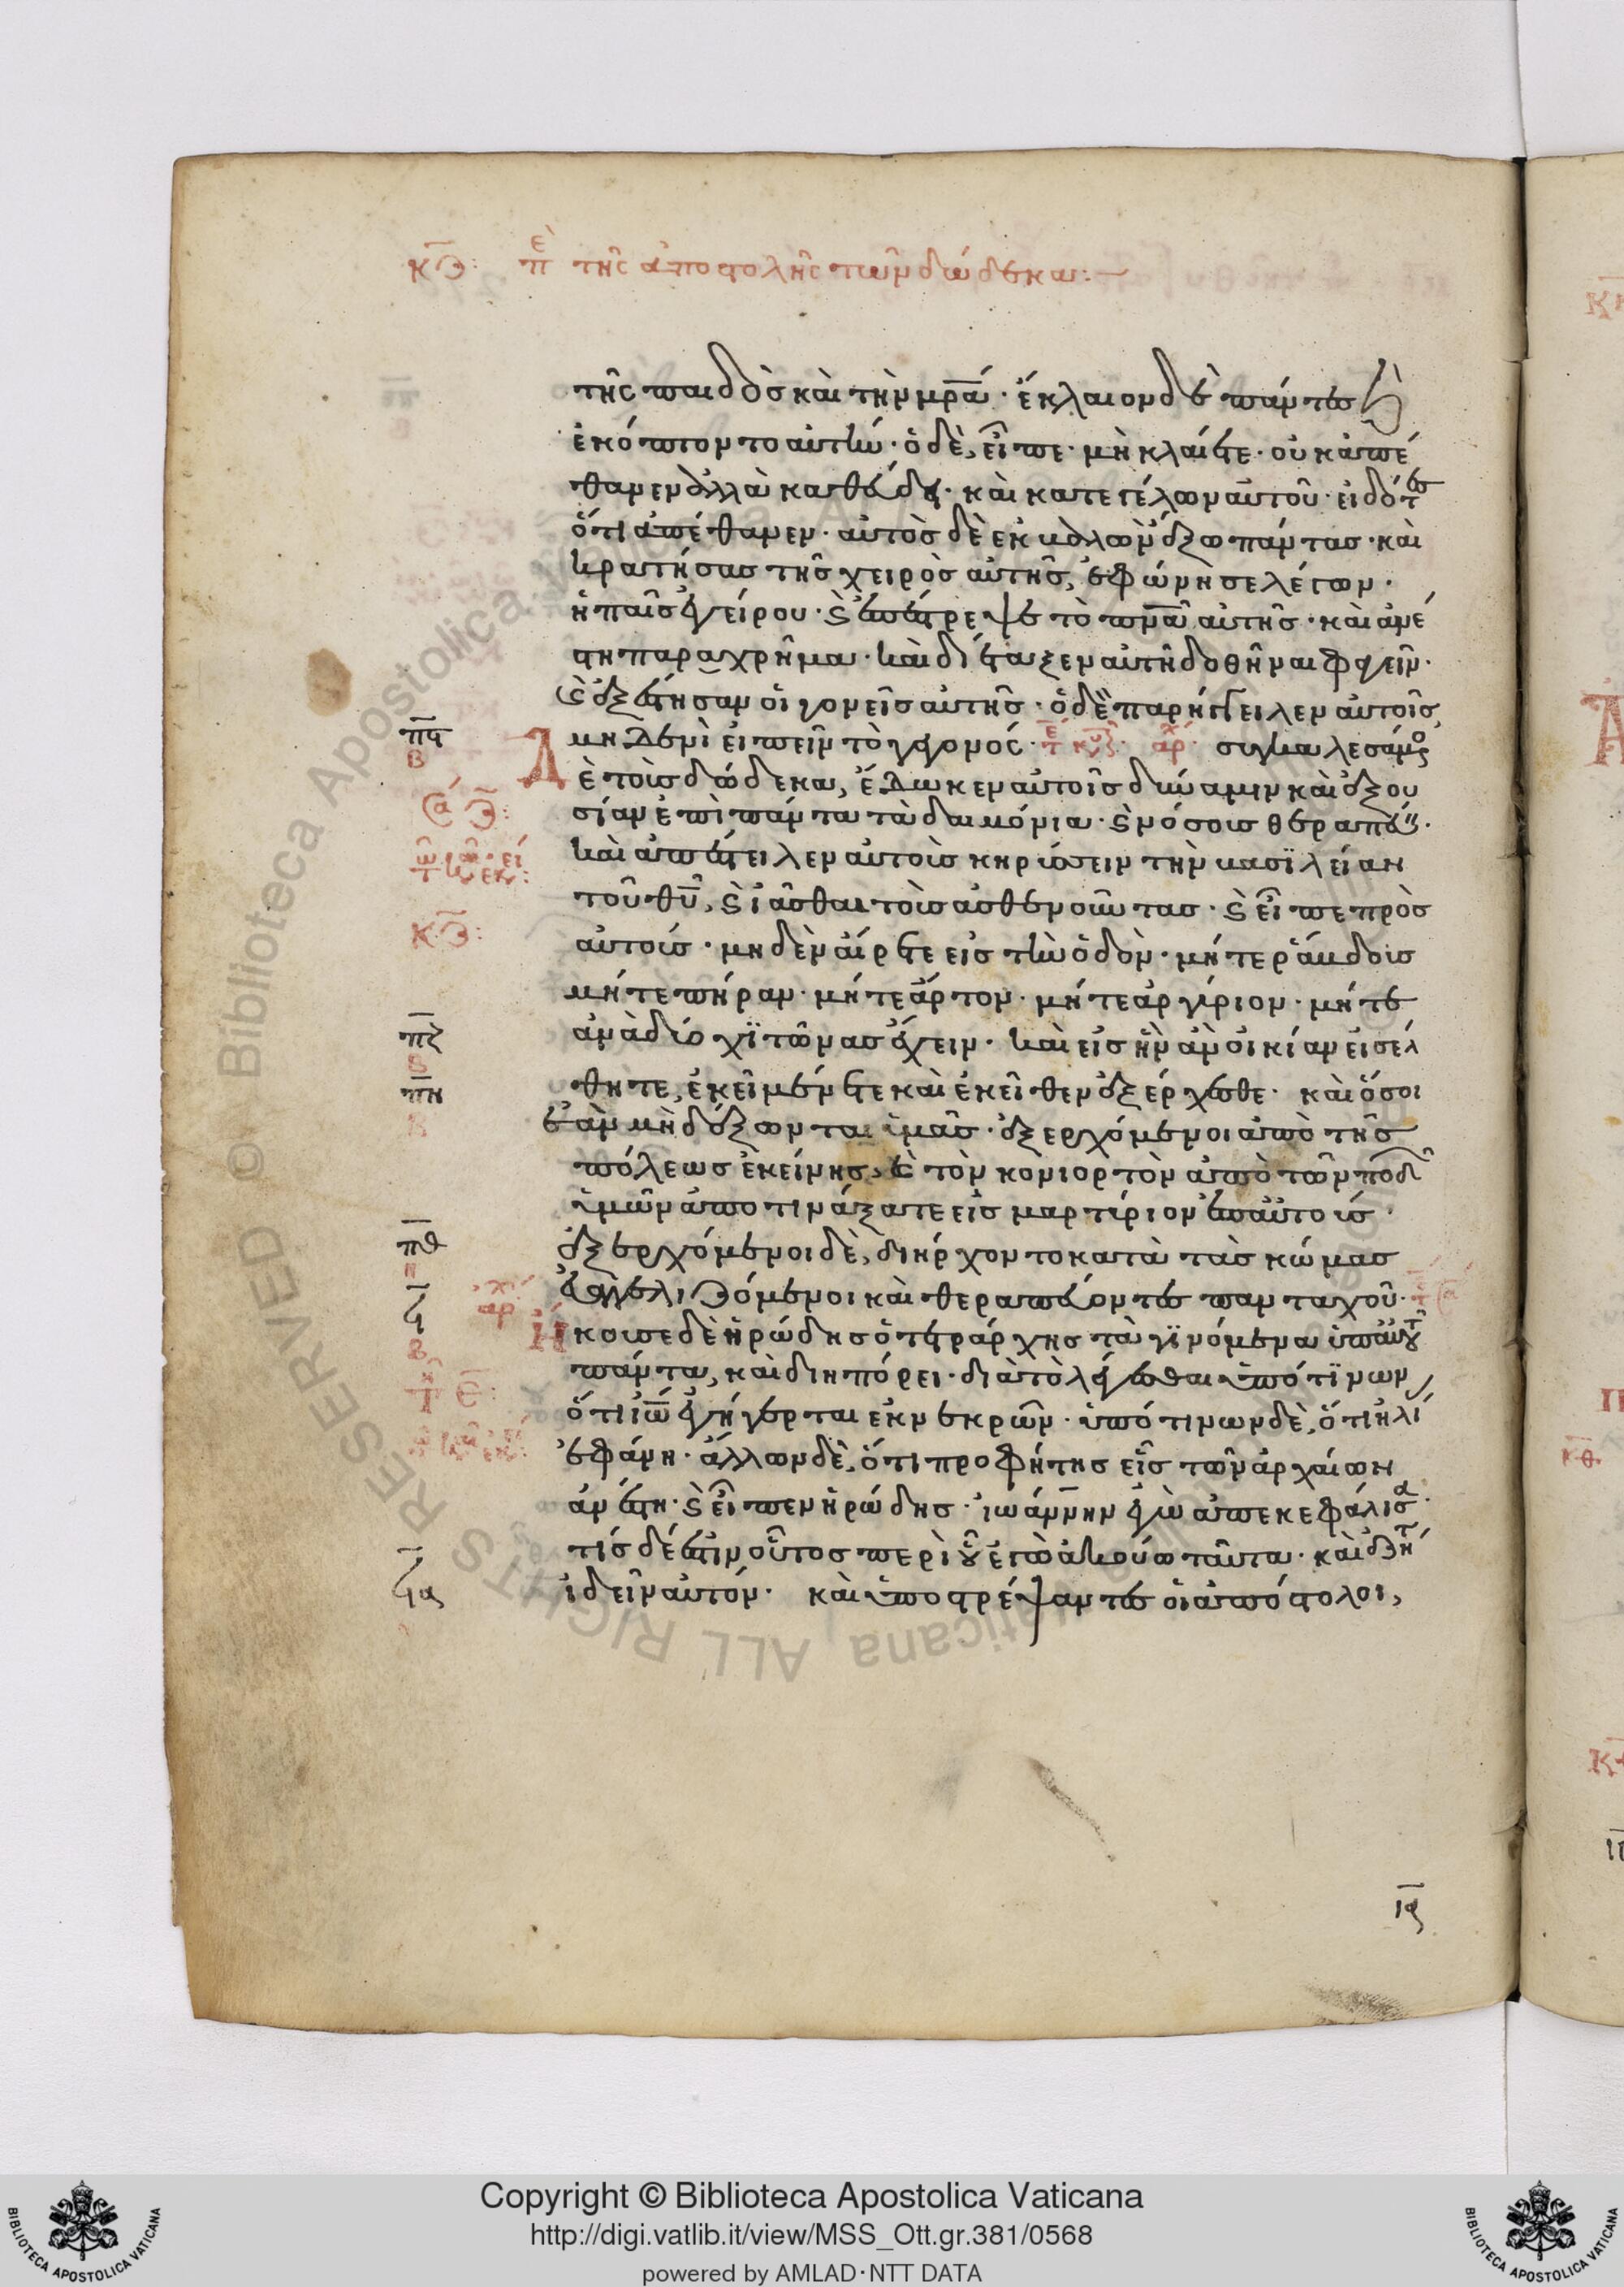 κε: περὶ τῆς ἀποστολῆς τῶν δώδεκα:—
τῆς παιδὸς καὶ τὴν μρ̅α· ἔκλαιον δὲ πάντες καὶ
ἐκόπτοντο αὐτὴν· ὁ δὲ, εἶπε· μὴ κλαίετε· οὐκ ἀπέ
θανεν ἀλλὰ καθεύδει· καὶ κατεγέλων αὐτοῦ· εἰδότες
ὅτι ἀπέθανεν· αὐτὸς δὲ ἐκβαλὼν ἔξω πάντας· καὶ
κρατήσας τῆς χειρὸς αὐτῆς, ἐφώνησε λέγων·
ἡ παῖς ἐγείρου· καὶ ἐπέστρεψε τὸ πν̅α αὐτῆς· καὶ ἀνέ
στη παραχρῆμα· καὶ διέταξεν αὐτῇ δοθῆναι φαγεῖν·
καὶ ἐξέστησαν οἱ γονεῖς αὐτῆς· ὁ δὲ παρήγγειλεν αὐτοῖς
πϛ μηδενὶ εἰπεῖν τὸ γεγονός· τε κυ αρχ συγκαλεσάμενος
β
δὲ τοὺς δώδεκα, ἔδωκεν αὐτοῖς δύναμιν καὶ ἐξου
σίαν ἐπὶ πάντα τὰ δαιμόνια· καὶ νόσους θεραπεύειν·
καὶ ἀπέστειλεν αὐτοὺς κηρύσσειν τὴν βασϊλείαν
τοῦ θυ̅, καὶ ἰᾶσθαι τοὺς ἀσθενοῦντας· καὶ εἶπε πρὸς
αὐτούς· μηδὲν αἴρετε εἰς τὴν ὁδὸν· μήτε ῥάβδους
μήτε πήραν· μήτε ἄρτον· μήτε ἀργύριον· μήτε
πζ ἀνὰ δύο χϊτῶνας ἔχειν· καὶ εἰς ἣν ἂν οἰκίαν εἰσέλ
β
πη θητε, ἐκεῖ μένετε καὶ ἐκεῖθεν ἐξέρχεσθε· καὶ ὅσοι
β
ἐὰν μὴ δέξωνται ὑμᾶς· ἐξερχόμενοι ἀπὸ τῆς
πόλεως ἐκείνης, καὶ τὸν κονιορτὸν ἀπὸ τῶν ποδῶν
ὑμῶν ἀποτινάξατε εἰς μαρτύριον ἐπ αὐτούς·
πθ ἐξερχόμενοι δὲ, διήρχοντο κατὰ τὰς κώμας
η
ϟ εὐαγγελιζόμενοι καὶ θεραπεύοντες πανταχοῦ·
αρχ
β Ἤκουσε δὲ ἡρώδης ὁ τετράρχης τὰ γϊνόμενα ὑπ αὐτοῦ
πάντα, καὶ διηπόρει· διὰ τὸ λέγεσθαι ὑπό τϊνων,
ὅτι ἰω̅ ἐγήγερται ἐκ νεκρῶν· ὑπό τινων δὲ, ὅτι ἠλί
ἐφάνη· ἄλλων δὲ, ὅτι προφήτης εἷς τῶν ἀρχαίων
ἀνέστη· καὶ εἶπεν ἡρώδης· ἰωάννην ἐγὼ ἀπεκεφάλισα·
τίς δέ ἐστιν οὗτος περὶ οὗ ἐγὼ ἀκούω ταῦτα· καὶ ἐζήτει
ϟα ἰδεῖν αὐτόν· καὶ ὑποστρέψαντες οἱ ἀπόστολοι,
ιϛ
Copyright © Biblioteca Apostolica Vaticana
http://digi.vatlib.it/view/MSS_Ott.gr.381/0568
powered by AMLAD·NTT DATA
BIBLIOTECA APOSTOLICA VATICANA
BIBLIOTECA APOSTOLICA VATICANA
Biblioteca Apostolica Vaticana ALL RIGHTS RESERVED ©